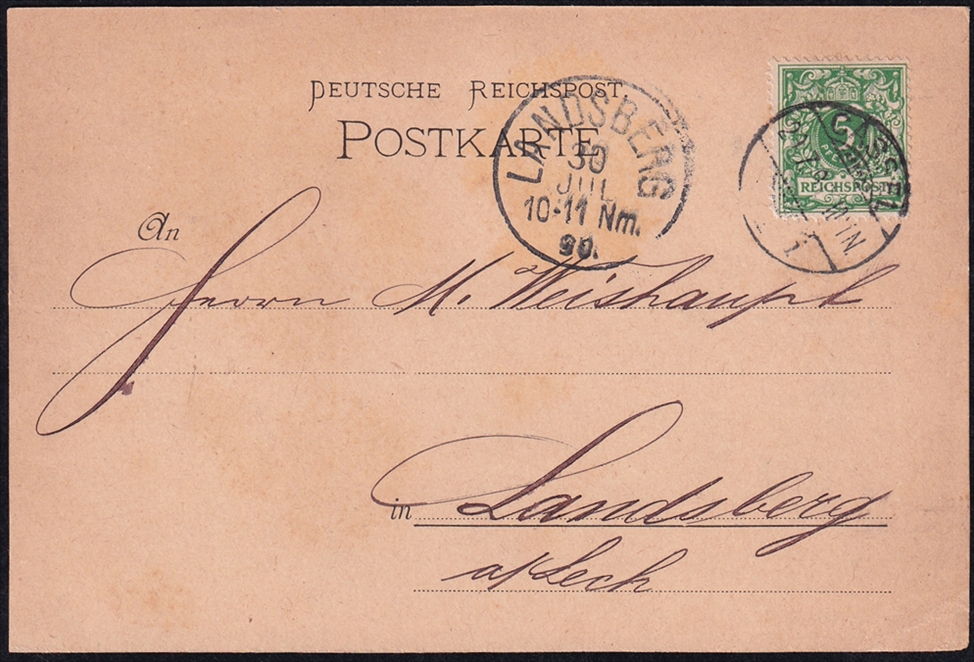 DEUTSCHE REICHSPOST.
POSTKARTE
LANDSBERG
30
JUL
10-11 Nm.
90.
5
REICHSPOST
CASSEL
1
An
Herrn M. Weishaupt
in Landsberg
a/Lech